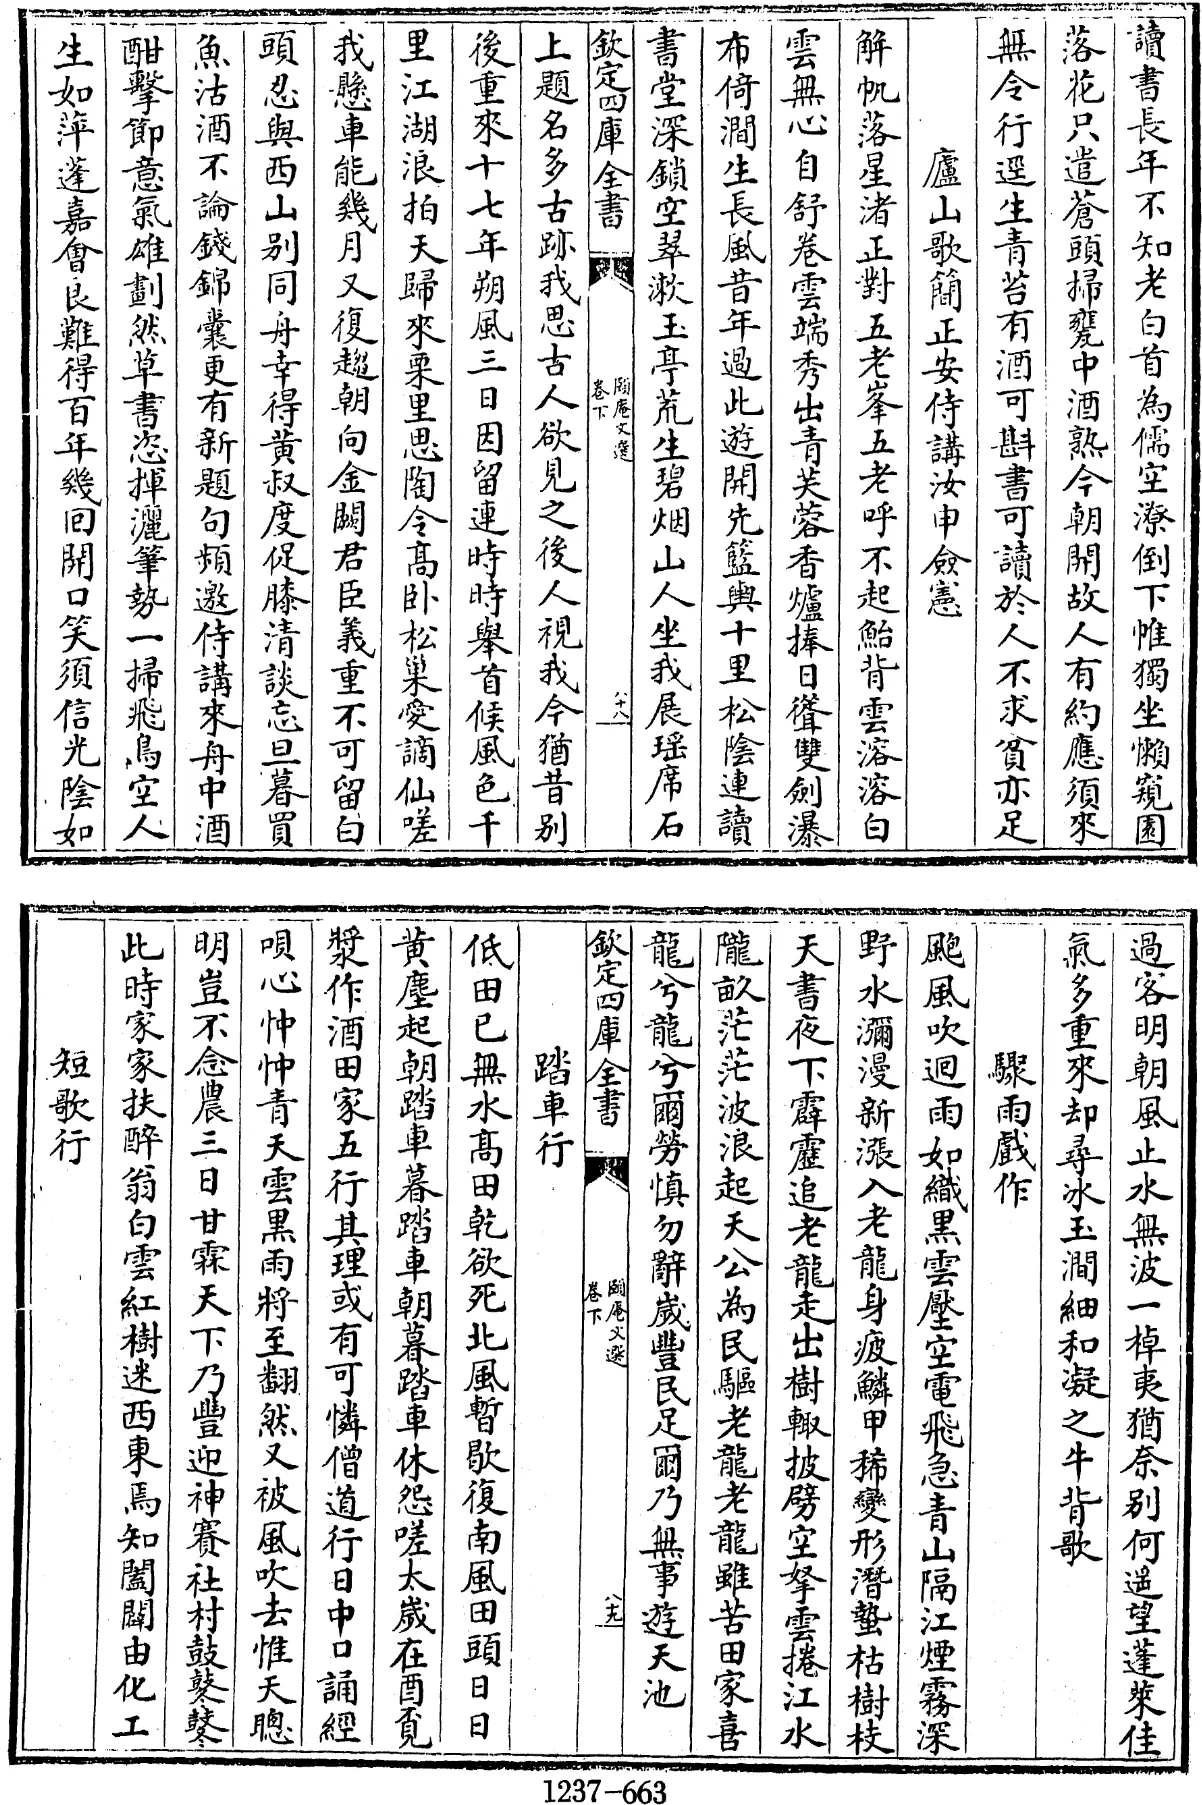 讀書長年不知老白首為儒空潦倒下帷獨坐懶窺園
落花只遣蒼頭掃甕中酒熟今朝開故人有約應須來
無令行逕生青苔有酒可斟書可讀於人不求貧亦足
廬山歌簡正安侍講汝申僉憲
解帆落星渚正對五老峯五老呼不起鮐背雲溶溶白
雲無心自舒卷雲端秀出青芙蓉香爐捧日聳雙劍瀑
布倚澗生長風昔年過此遊開先籃輿十里松陰連讀
書堂深鎖空翠漱玉亭荒生碧烟山人坐我展瑤席石
欽定四庫全書
頤庵文選
卷下
八十八
上題名多古跡我思古人欲見之後人視我今猶昔别
後重來十七年朔風三日因留連時時舉首候風色千
里江湖浪拍天歸來栗里思陶令高卧松巢愛謫仙嗟
我懸車能幾月又復趨朝向金闕君臣義重不可留白
頭忍與西山别同舟幸得黄叔度促膝清談忘旦暮買
魚沽酒不論錢錦囊更有新題句頻邀侍講來舟中酒
酣擊節意氣雄劃然草書恣揮灑筆勢一掃飛鳥空人
生如萍蓬嘉會良難得百年幾回開口笑須信光陰如
過客明朝風止水無波一棹夷猶奈别何遥望蓬萊佳
氣多重來却尋冰玉澗細和凝之牛背歌
驟雨戲作
颮風吹迴雨如織黒雲壓空電飛急青山隔江煙霧深
野水瀰漫新漲入老龍身疲鱗甲稀變形潛蟄枯樹枝
天書夜下霹靂追老龍走出樹輙披劈空拏雲捲江水
隴畝茫茫波浪起天公為民驅老龍老龍雖苦田家喜
龍兮龍兮爾勞慎勿辭嵗豐民足爾乃無事遊天池
欽定四庫全書
頤庵文選
卷下
八十九
踏車行
低田已無水髙田乾欲死北風暫歇復南風田頭日日
黄塵起朝踏車暮踏車朝暮踏車休怨嗟太嵗在酉覔
漿作酒田家五行其理或有可憐僧道行日中口誦經
唄心忡忡青天雲黒雨將至翻然又被風吹去惟天聰
明豈不念農三日甘霖天下乃豐迎神賽社村鼓鼕鼕
此時家家扶醉翁白雲紅樹迷西東焉知闔闢由化工
短歌行
1237-663